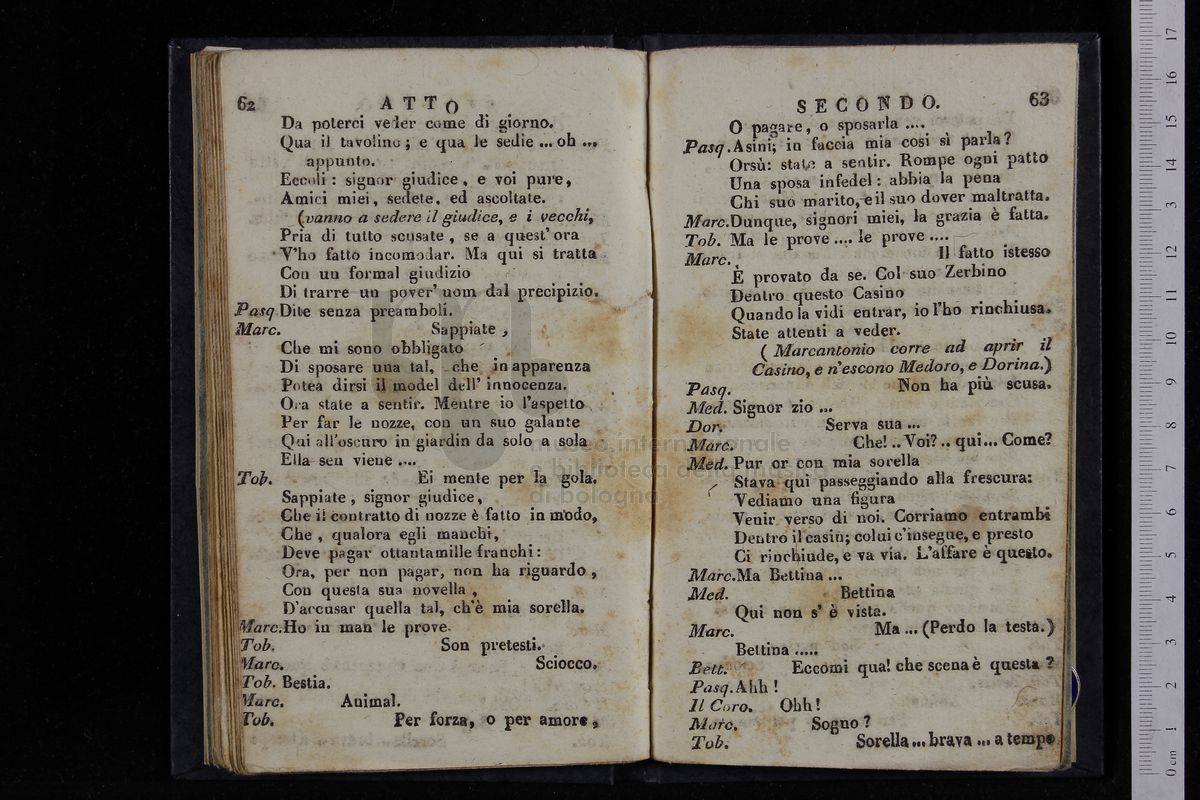 62 ATTO
Da poterci veder come di giorno.
Qua il tavolino; e qua le sedie ... oh ...
appunto.
Eccoli: signor giudice, e voi pure,
Amici miei, sedete, ed ascoltate.
(vanno a sedere il giudice, e i vecchi,
Pria di tutto scusate, se a quest' ora
V'ho fatto incomodar. Ma qui si tratta
Con un formal giudizio
Di trarre un pover' uom dal precipizio.
Pasq Dite senza preamboli.
Marc. Sappiate,
Che mi sono obbligato
Di sposare una tal, che in apparenza
Potea dirsi il model dell' innocenza.
Ora state a sentir. Mentre io l'aspetto
Per far le nozze, con un suo galante
Qui all'oscuro in giardin da solo a sola
Ella sen viene ....
Tob. Ei mente per la gola.
Sappiate, signor giudice,
Che il contratto di nozze è fatto in modo,
Che, qualora egli manchi,
Deve pagar ottantamille franchi:
Ora, per non pagar, non ha riguardo,
Con questa sua novella,
D'accusar quella tal, ch'è mia sorella.
Marc. Ho in man le prove.
Tob. Son pretesti.
Marc. Sciocco.
Tob. Bestia.
Marc. Animal.
Tob. Per forza, o per amore,
SECONDO. 63
O pagare, o sposarla ....
Pasq. Asini; in faccia mia così sì parla?
Orsù: state a sentir. Rompe ogni patto
Una sposa infedel: abbia la pena
Chi suo marito, e il suo dover maltratta.
Marc. Dunque, signori miei, la grazia è fatta.
Tob. Ma le prove .... le prove ....
Marc. Il fatto istesso
È provato da se. Col suo Zerbino
Dentro questo Casino
Quando la vidi entrar, io l'ho rinchiusa.
State attenti a veder.
( Marcantonio corre ad aprir il
Casino, e n'escono Medoro, e Dorina.)
Pasq. Non ha più scusa.
Med. Signor zio ...
Dor. Serva sua ...
Marc. Che! .. Voi? .. qui... Come?
Med. Pur or con mia sorella
Stava qui passeggiando alla frescura:
Vediamo una figura
Venir verso di noi. Corriamo entrambi
Dentro il casin; colui c'insegue, e presto
Ci rinchiude, e va via. L'affare è questo.
Marc. Ma Bettina ...
Med. Bettina
Qui non s' è vista.
Marc. Ma ... (Perdo la testa.)
Bettina .....
Bett. Eccomi qua! che scena è questa ?
Pasq. Ahh !
Il Coro. Ohh !
Marc. Sogno ?
Tob. Sorella ... brava ... a tempo
museo internazionale
e biblioteca della musica
di bologna
0 cm 1 2 3 4 5 6 7 8 9 10 11 12 13 14 15 16 17